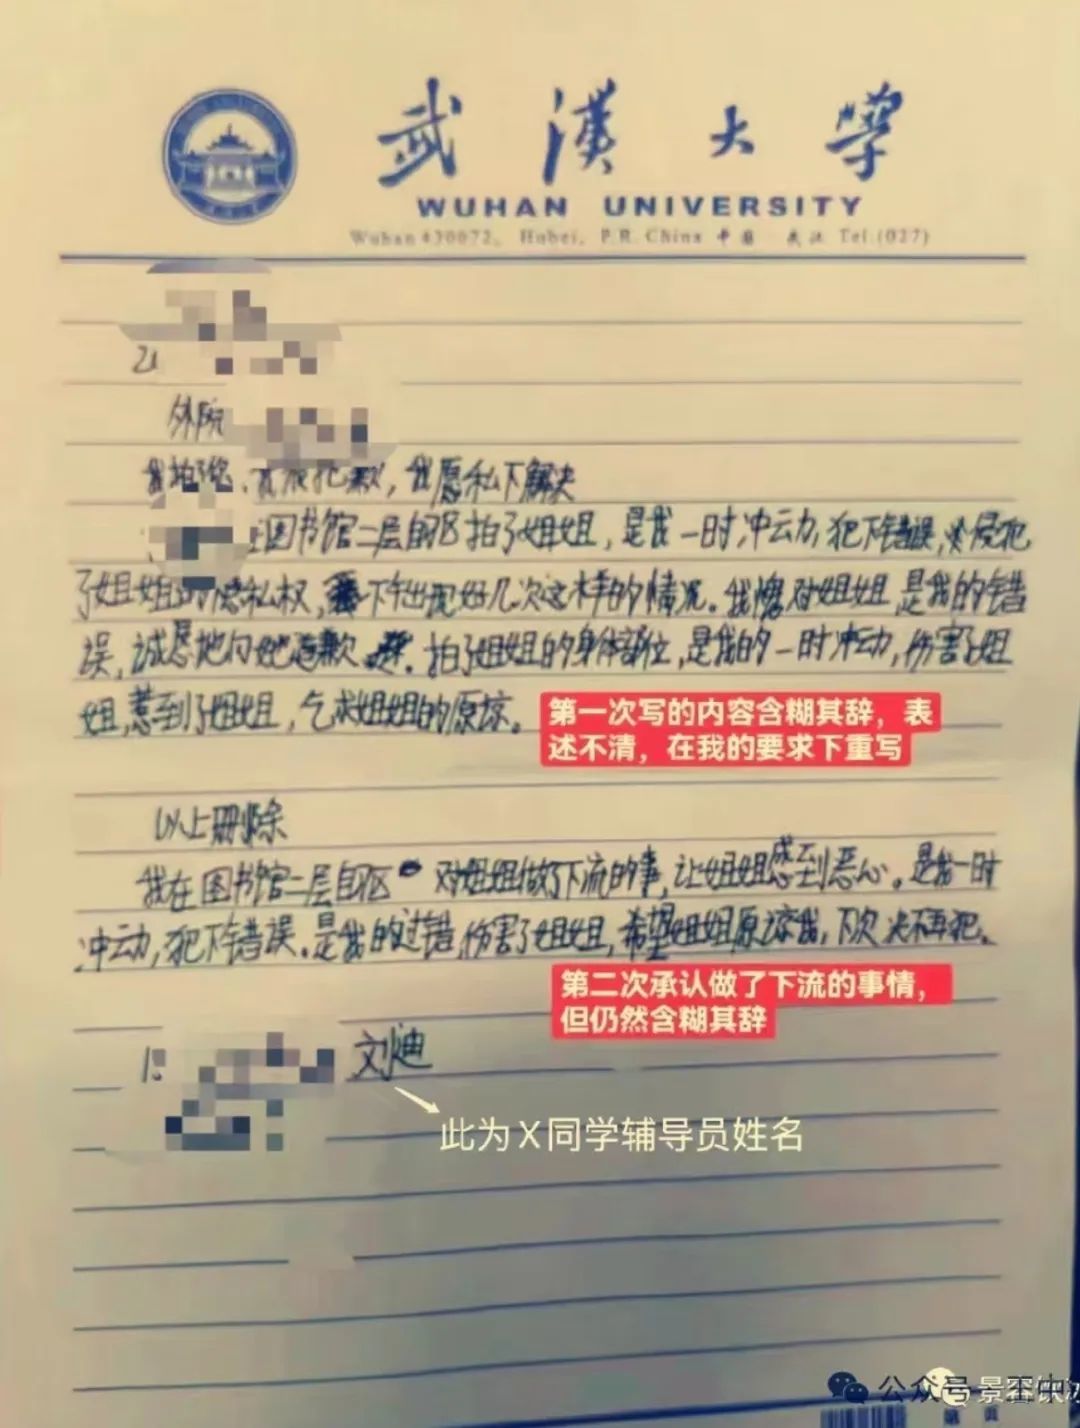 武漢大學
WUHAN UNIVERSITY
Wuhan 430072, Hubei, P.R. China 中国·武汉 Tel.(027)
外院
道歉，我愿私下解决
在图书馆二层自习区拍了姐姐，是我一时冲动，犯下错误，侵犯
了姐姐的隐私权，下午出现好几次这样的情况。我愧对姐姐，是我的错
误，诚恳地向她道歉。拍了姐姐的身体部位，是我的一时冲动，伤害了姐
姐，惹到了姐姐，乞求姐姐的原谅。
第一次写的内容含糊其辞，表
述不清，在我的要求下重写
以上删除
我在图书馆二层自习区对姐姐做了下流的事，让姐姐感到恶心。是我一时
冲动，犯下错误。是我的过错，伤害了姐姐，希望姐姐原谅我，下次决不再犯。
第二次承认做了下流的事情，
但仍然含糊其辞
刘迪
此为X同学辅导员姓名
公众号